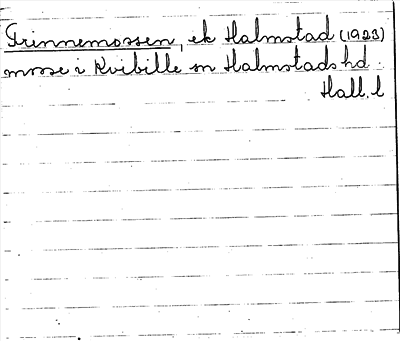 Grinnemossen, ek Halmstad (1923)
mosse i Kvibille sn Halmstads hd.
Hall. l